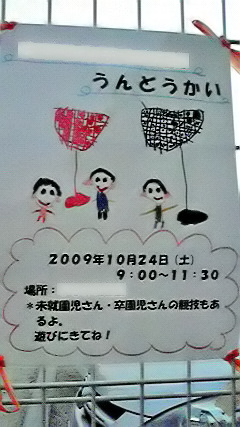 うんどうかい
2009年10月24日(土)
9:00～11:30
場所:
*未就園児さん・卒園児さんの競技もあ
るよ。
遊びにきてね!